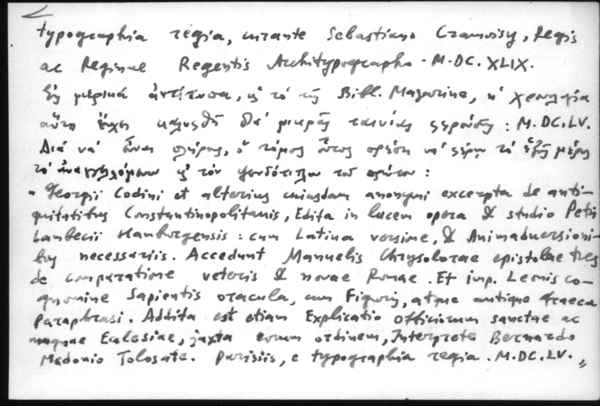 typographia regia, curante Sebastiano Cramoisy, Regis
ac Reginae Regentis Architypographo. M.DC.XLIX.
Εἰς μερικὰ ἀντίτυπα, τὸ τῆς Bibl. Mazarine, ἡ χρονολογία
αὕτη ἔχει καλυφθῆ διὰ μικρᾶς ταινίας : M.DC.LV.
Διὰ νὰ εἶναι πλήρης, ὁ τόμος οὗτος πρέπει νὰ φέρῃ τὰ ἑξῆς μέρη
τὸν ψευδότιτλον τοῦτον :
"Georgii Codini et alterius cuiusdam anonymi excerpta de anti-
quitatibus Constantinopolitanis, Edita in lucem opera & studio Petri
Lambecii Hamburgensis : cum Latina versione, & Animadversioni-
bus necessariis. Accedunt Manuelis Chrysolorae epistolae tres
de comparatione veteris & novae Romae. Et imp. Leonis co-
gnomine Sapientis oracula, cum Figuris, atque antiqua Graeca
Paraphrasi. Addita est etiam Explicatio Officiorum sanctae ac
magnae Ecclesiae, juxta eorum ordinem, Interprete Bernardo
Medonio Tolosate. Parisiis, e typographia regia. M.DC.LV."